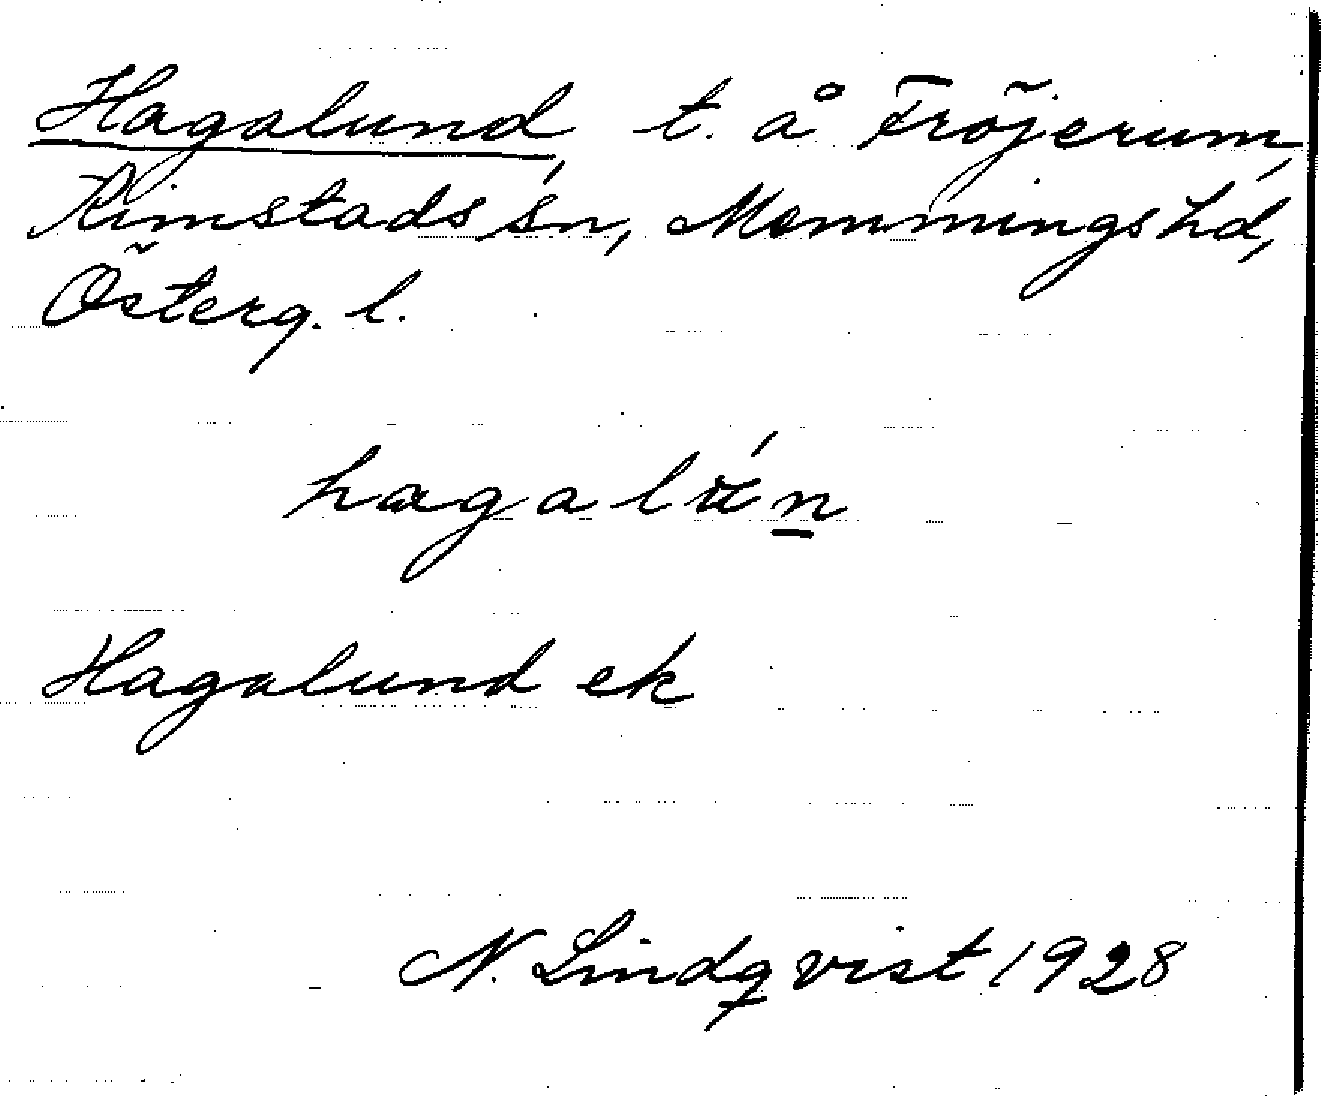 Hagalund, t. å Fröjerum,
Rimstads sn, Memmings hd,
Österg. l.
hagalu̇́n
Hagalund ek
N. Lindqvist 1928